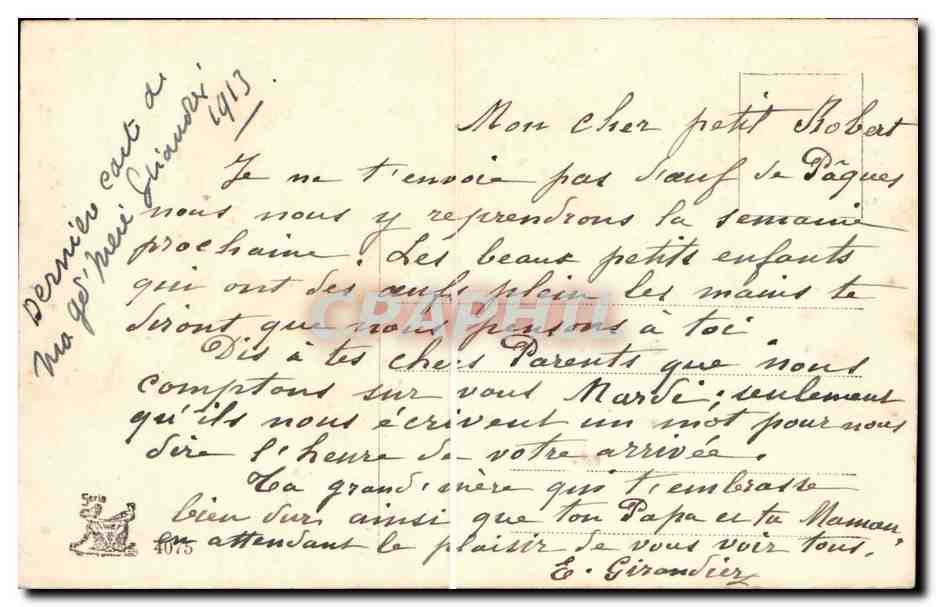 Dernière carte de
ma gd' Mère Girandier
1913
Mon cher petit Robert
Je ne t'envoie pas d'œuf de Pâques
nous nous y reprendrons la semaine
prochaine. Les beaux petits enfants
qui ont des œufs plein les mains te
diront que nous pensons à toi
Dis à tes chers Parents que nous
comptons sur vous Mardi; seulement
qu'ils nous écrivent un mot pour nous
dire l'heure de votre arrivée.
Ta grand'mère qui t'embrasse
bien dur ainsi que ton Papa et ta Maman,
en attendant le plaisir de vous voir tous.
E. Girandier
Serie
4075
CPAPHIL